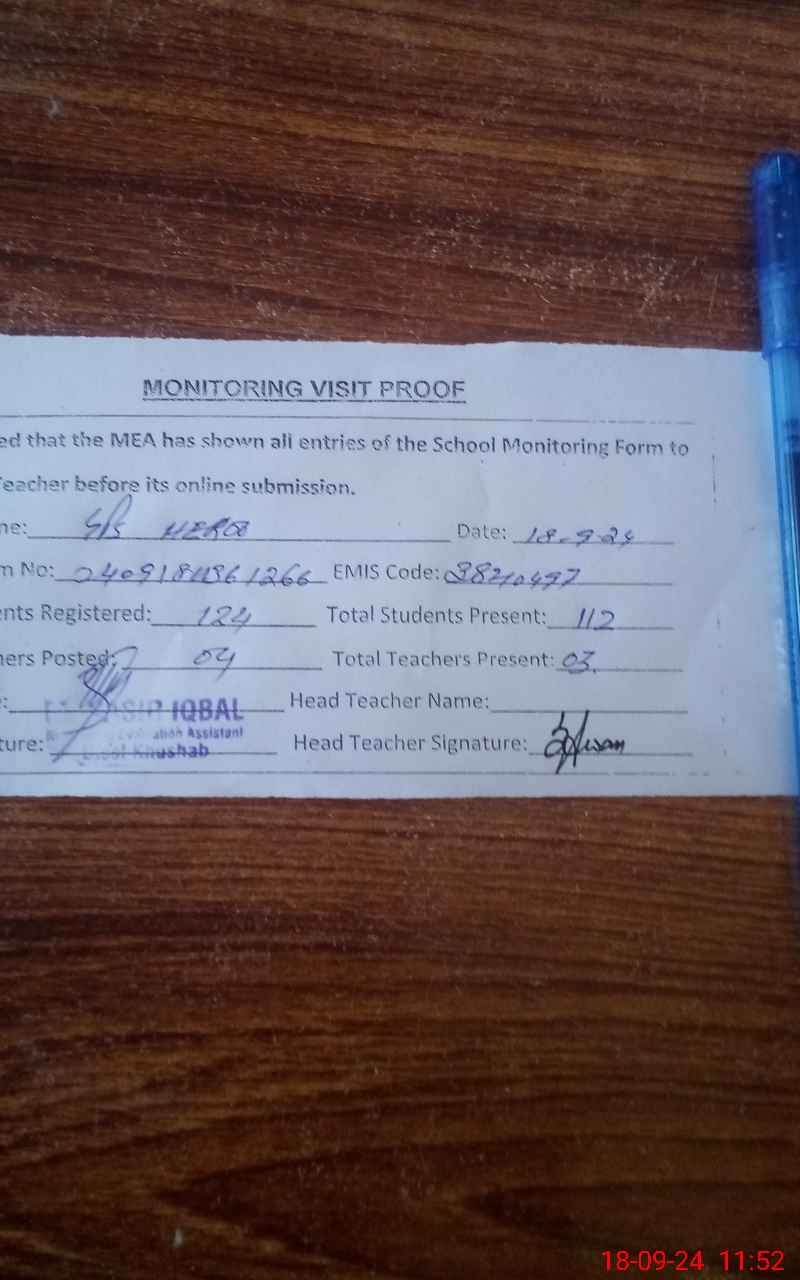 MONITORING VISIT PROOF
ed that the MEA has shown all entries of the School Monitoring Form to
eacher before its online submission.
me: GPS Date: 18-9-24
m No: EMIS Code: 38210497
nts Registered: 124 Total Students Present: 112
ers Posted: 04 Total Teachers Present: 03
: IQBAL Head Teacher Name:
Assistant
ture: Khushab Head Teacher Signature:
18-09-24 11:52